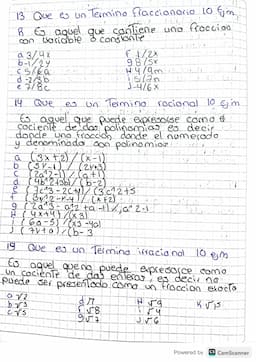 13 Que es un Termino Fraccionario 10 Ejm.
R Es aquel que contiene una fraccion
con variable o constante
a 3/4x F 1/2x
b-1/2y g 8/5x
c 5/6a H 4/9m
d-2/3b i 5/7n
e 7/8c J-4/6x
14 Que es un Termino racional 10 Ejm
Es aquel que puede expresarse como el
cociente de dos polinomios es decir
donde una fraccion donde el numerador
y denominado son polinomios
a (3x+2)/(x-1)
b (5y-1)/(2y+3)
c (2a^2-1)/(a+1)
d (4b^2+3b)/(b-2)
19 Que es un Termino irracional 10 ejm
Es aquel que no puede expresarse como
un cociente de dos enteros, es decir no
puede ser presentado como un fraccion exacta
a √2 d √7 H √9 K √15
b √3 F √8 i √4
c √5 g √7 J √6
Powered by CS CamScanner